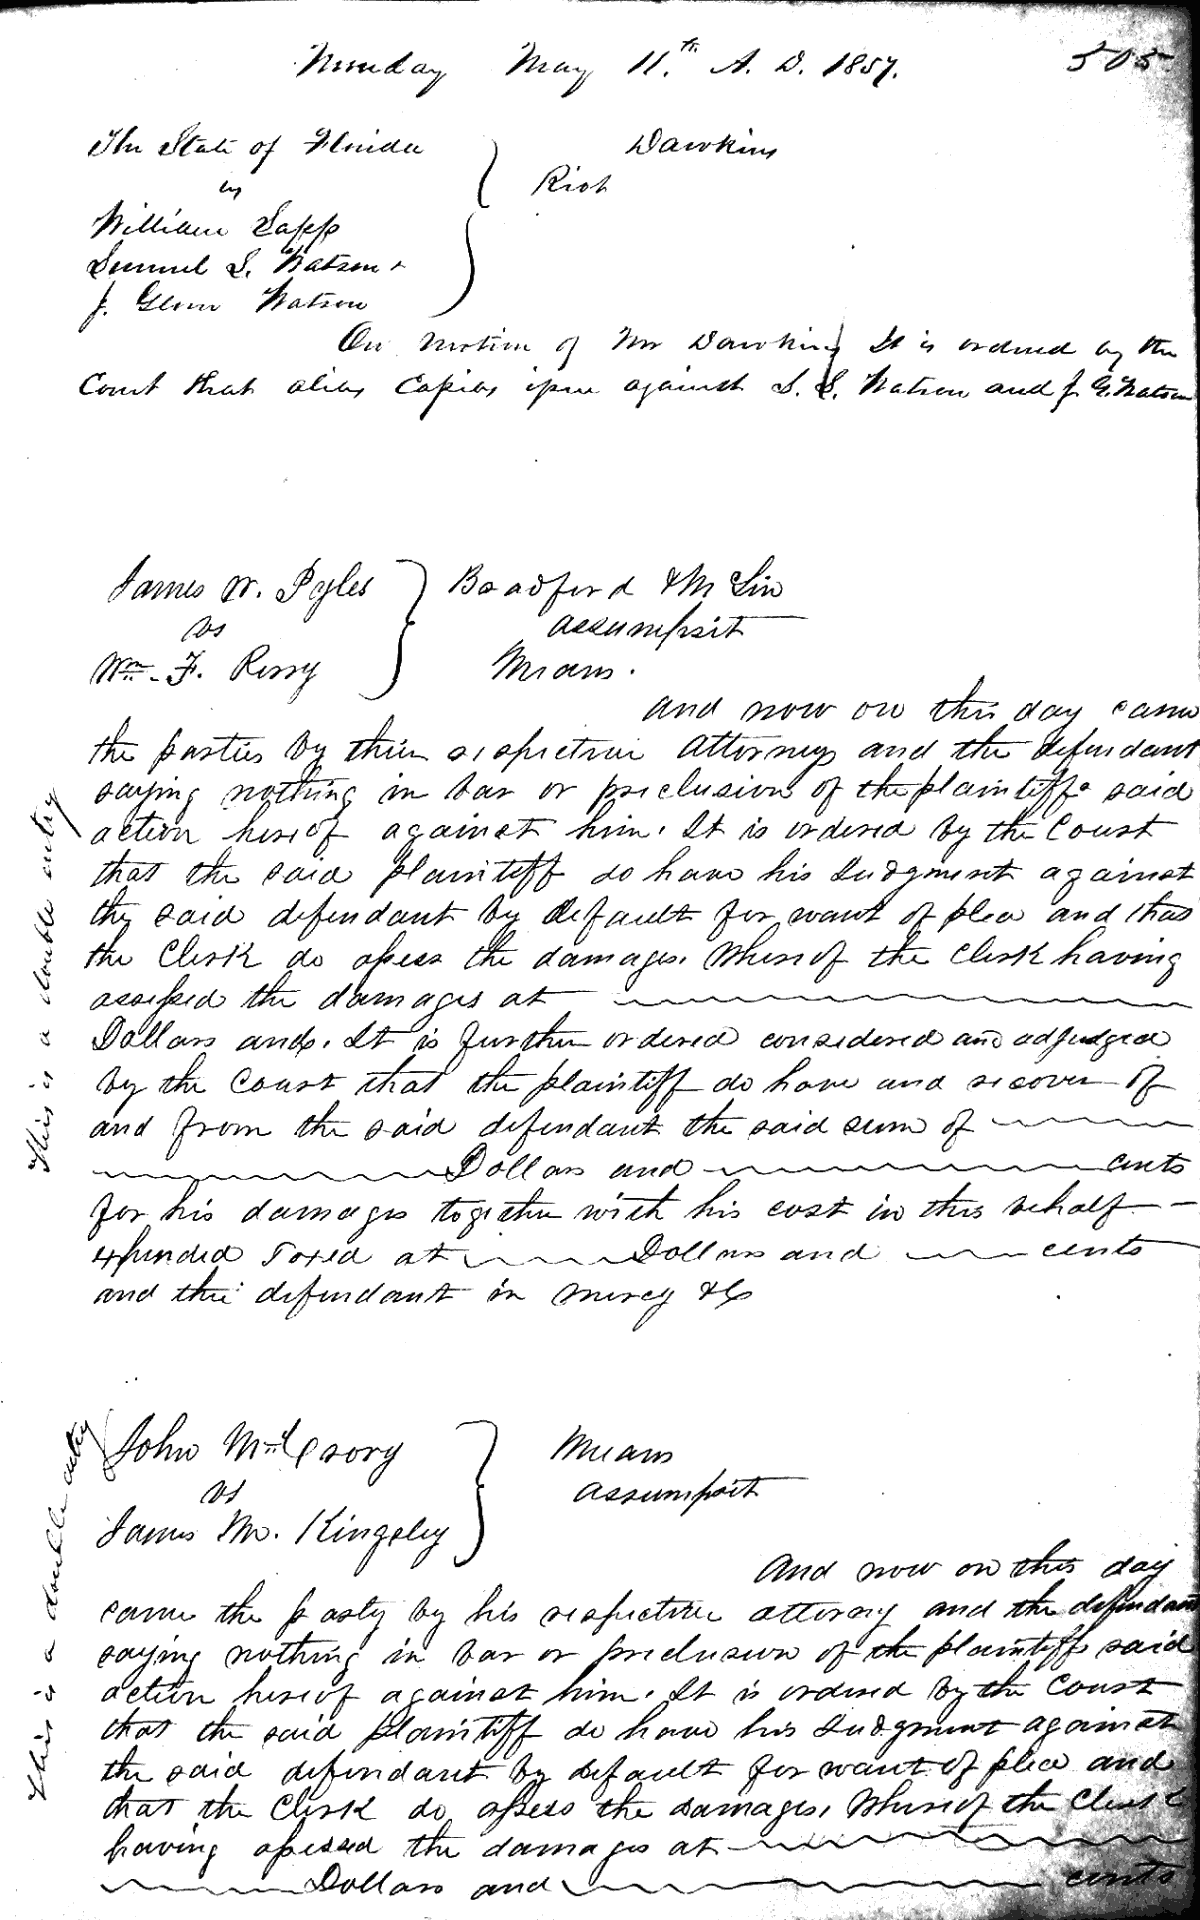 Monday May 11th. A. D. 1857. 505
The State of Florida Dawkins
vs Riot
William Sapp
Samuel S. Watson &
J. Glenn Watson
On motion of Mr Dawkins It is ordered by the
Court that alias Capias issue against S. S. Watson and J. G. Watson
James W. Pyles Bradford & McLin
vs assumpsit
Wm. F. Perry Means.
and now on this day came
the parties by their respective attorneys and the defendant
saying nothing in bar or preclusion of the plaintiffs said
action hereof against him. It is ordered by the Court
that the said plaintiff do have his Judgment against
the said defendant by default for want of plea and that
the Clerk do assess the damages. Whereof the Clerk having
assessed the damages at
Dollars and. It is further ordered considered and adjudged
by the Court that the plaintiff do have and recover of
and from the said defendant the said sum of
Dollars and cents
for his damages together with his cost in this behalf
expended Taxed at Dollars and cents
and the defendant in mercy &c
This is a double entry
John McCrory Means
vs assumpsit
James M. Kingsley
And now on this day
came the party by his respective attorney and the defendant
saying nothing in bar or preclusion of the plaintiffs said
action hereof against him. It is ordered by the Court
that the said plaintiff do have his Judgment against
the said defendant by default for want of plea and
that the Clerk do assess the damages. Whereof the Clerk
having assessed the damages at
Dollars and cents
This is a double entry